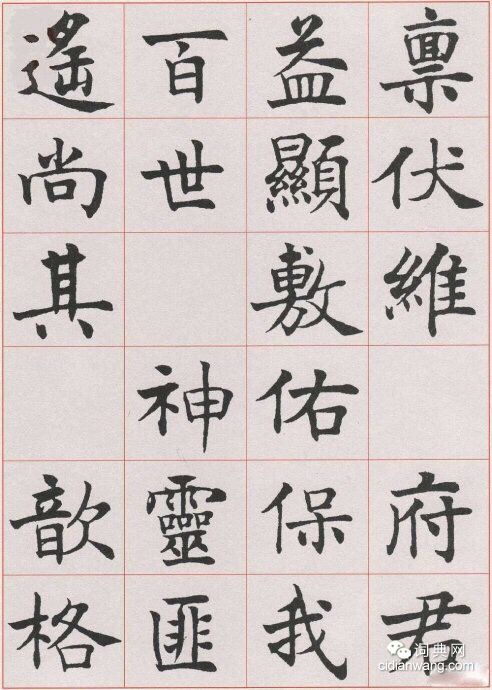 禀伏維 府君
益顯敷佑保我
百世 神靈匪
遙尚其 歆格
词典网
cidianwang.com